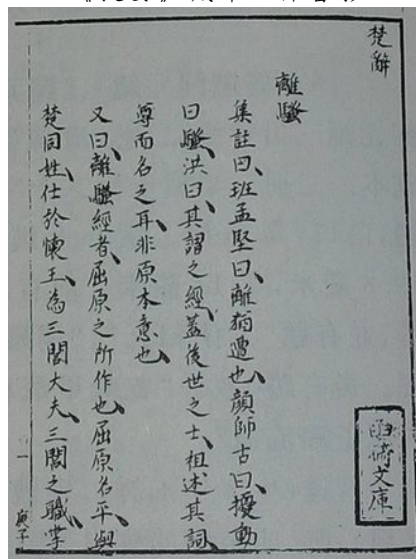 楚辭
離騷
集註曰、班孟堅曰、離猶遭也、顏師古曰、擾動
曰騷、洪曰、其謂之經、蓋後世之士、祖述其詞、
尊而名之耳、非原本意也、
又曰、離騷經者、屈原之所作也、屈原名平、與
楚同姓、仕於懷王、為三閭大夫、三閭之職、掌
一
文庫